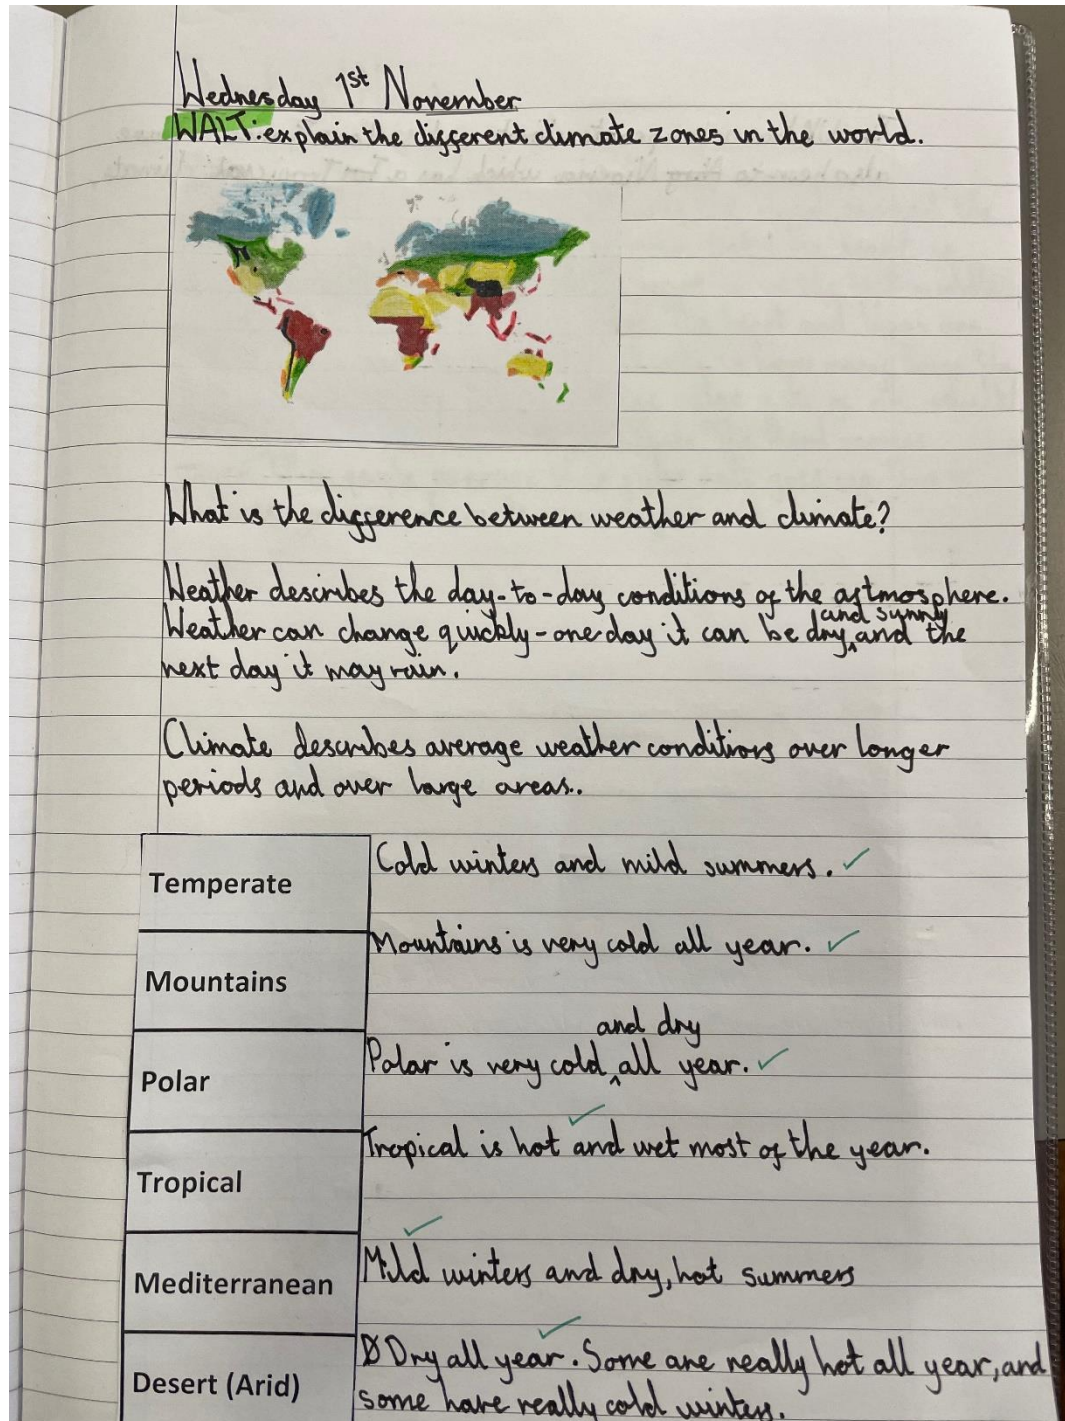 Wednesday 1st November
WALT: explain the different climate zones in the world.
What is the difference between weather and climate?
Weather describes the day-to-day conditions of the astmosphere.
Weather can change quickly - one day it can be dry and sunny and the
next day it may rain.
Climate describes average weather conditions over longer
periods and over large areas..
Temperate
Cold winters and mild summers.
Mountains
Mountains is very cold all year.
Polar
Polar is very cold and dry all year.
Tropical
Tropical is hot and wet most of the year.
Mediterranean
Mild winters and dry, hot summers
Desert (Arid)
Dry all year. Some are really hot all year, and
some have really cold winters.